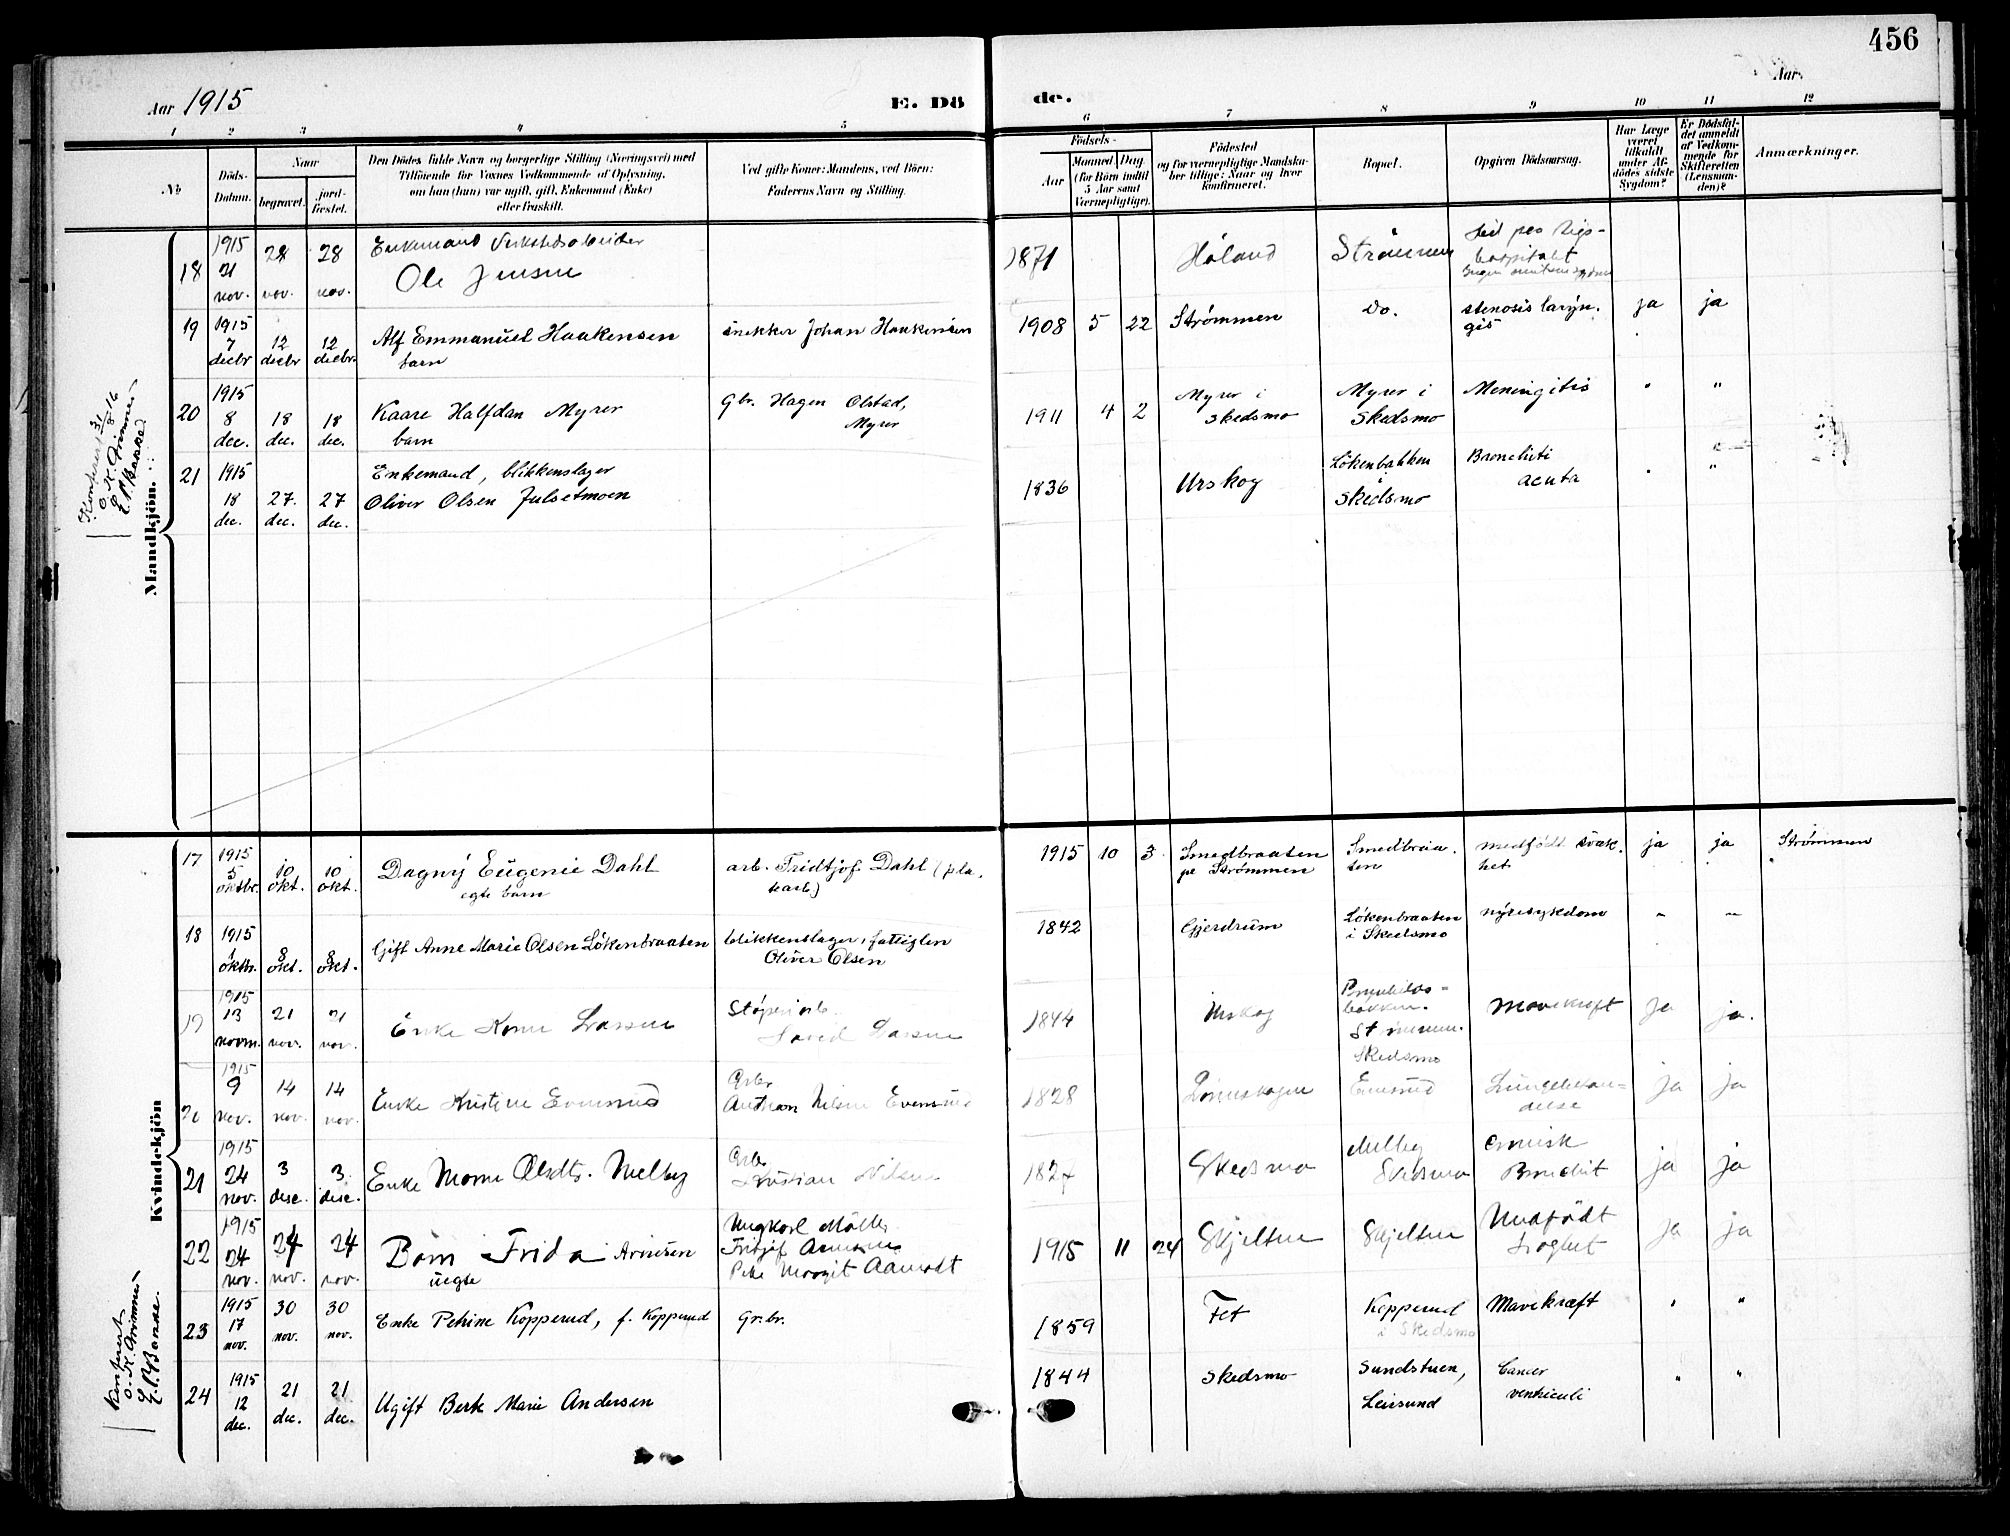 456
Aar 1915
E. Dö
de.
Aar
1 2 3 4 5 6 7 8 9 10 11 12
No
Döds-Datum.
Naar
begravet.
jord-fæstet.
Den Dödes fulde Navn og borgerlige Stilling (Næringsvei) med
Tilföiende for Voxnes Vedkommende af Oplysning,
om han (hun) var ugift, gift, Enkemand (Enke)
eller fraskilt.
Ved gifte Koner: Mandens, ved Börn:
Faderens Navn og Stilling.
Födsels-
Aar
Maaned Dag
(for Börn indtil
5 Aar samt
Værnepligtige).
Födested
og for værnepligtige Mandska-
ber tillige: Naar og hvor
konfirmeret.
Bopæl.
Opgiven Dödsaarsag.
Har Læge
været
tilkaldt
under Af-
dödes sidste
Sygdom?
Er Dödsfal-
det anmeldt
af Vedkom-
mende for
Skifteretten
(Lensman-
den)?
Anmærkninger.
Mandkjön.
18 1915 21 nov. 28 nov. 28 nov.
Enkemand Verkstedsarbeider
Ole Jensen
1871 Höland Strömmen
19 1915 7 decbr 12 decbr 12 decbr.
Alf Emmanuel Haakensen
barn
snekker Johan Haakensen
1908 5 22 Strømmen Do. stenosis laryn-
gis ja ja
20 1915 8 dec. 18 dec. 18 dec.
Kaare Halfdan Myrer
barn
Gbr. Hagen Olstad,
Myrer
1911 4 2 Myrer i
Skedsmo
Myrer i
Skedsmo
Meningitis " "
21 1915 18 dec. 27. dec. 27 dec.
Enkemand, blikkenslager
Oliver Olsen Julsetmoen
1836 Urskog Lökenbakken
Skedsmo
acuta " "
Kvindekjön
17 1915 5 oktbr. 10 okt. 10 okt.
Dagny Eugenie Dahl
egte barn
arb. Fridtjof Dahl
1915 10 3 Smedbraaten
pr Strømmen
Smedbraa-
ten
medfödt svak-
het
ja ja Strømmen
18 1915 1 oktbr. 8 okt. 8 okt.
Gift Anne Marie Olsen Lökenbraaten
blikkenslager, fattiglem
Oliver Olsen
1842 Gjerdrum Lökenbraaten
i Skedsmo
nyresykdom " "
19 1915 13 novm. 21 nov. 21 nov.
Enke Larsen
Larsen
1844 Urskog
Strömmen.
Skedsmo
Mavekræft ja ja.
20 1915 9 nov. 14 nov. 14 nov.
Enke Kristine Evensrud
Arbr
Anthon Nilsen Evensrud
1828 Evensrud Lungebetæn-
delse
ja ja
21 1915 24 nov. 3 dese. 3 dese.
Enke Olsdtr. Melby
Arbr
Kristian Nilsen
1827 Skedsmo Melby
Skedsmo
ja ja
22 1915 24 nov. 24 nov. 24 nov.
Barn Frida Arnesen
uegte
Ungkarl
Pike Margit Aamodt
1915 11 24 Skjelten Skjelten Medfödt
ja ja
23 1915 17 nov. 30 nov. 30 nov.
Enke Petrine Kopperud, f. Kopperud
Gr.br.
1859 Fet Kopperud
i Skedsmo
Mavekræft " "
24 1915 12 dec. 21 dec. 21 dec.
Ugift Berte Marie Andersen
1844 Skedsmo Sundstuen,
Leirsund
Cancer
ventriculi " "